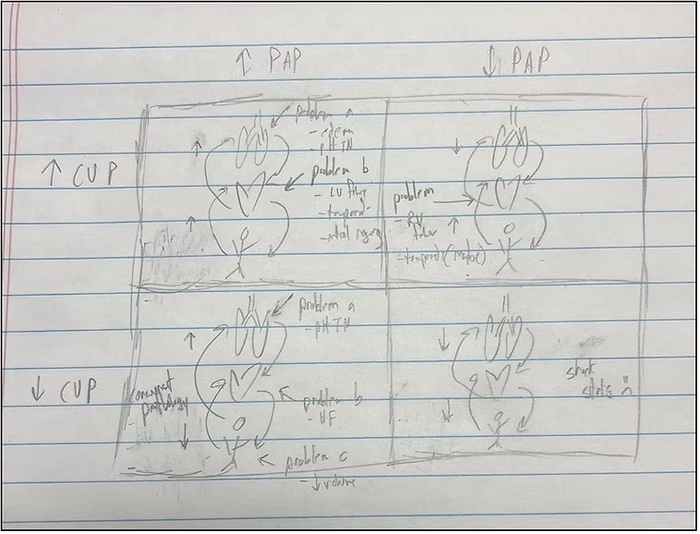 ↑ PAP
↓ PAP
↑ CVP
problem a
- edema
- pHTN
problem b
- LV failure
- tamponade
- mitral regurg
↑
↑
problem
- RV failure
- tamponade
↓
↑
↓ CVP
concurrent
pathology
problem a
- pHTN
problem b
- HF
problem c
- ↓ volume
↑
↓
shock
states
↓
↓